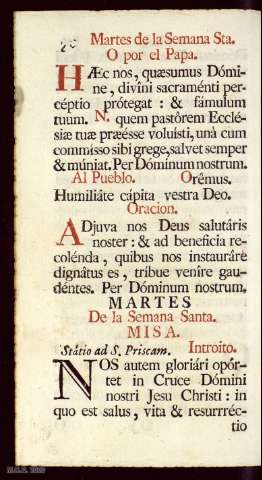 Martes de la Semana Sta.
O por el Papa.
HÆc nos, quæsumus Dómi-
ne, divíni sacraménti per-
céptio prótegat : & fámulum
tuum. N. quem pastôrem Ecclé-
siæ tuæ præésse voluísti, unà cum
commísso sibi grege, salvet semper
& múniat. Per Dóminum nostrum.
Al Pueblo. Orêmus.
Humiliáte cápita vestra Deo.
Oracion.
ADjuva nos Deus salutáris
noster : & ad beneficia re-
colénda, quibus nos instauráre
dignátus es, tribue venîre gau-
déntes. Per Dóminum nostrum.
MARTES
De la Semana Santa.
MISA.
Státio ad S. Priscam. Introito.
NOS autem gloriári opór-
tet in Cruce Dómini
nostri Jesu Christi : in
quo est salus, vita & resurrréc-
tio